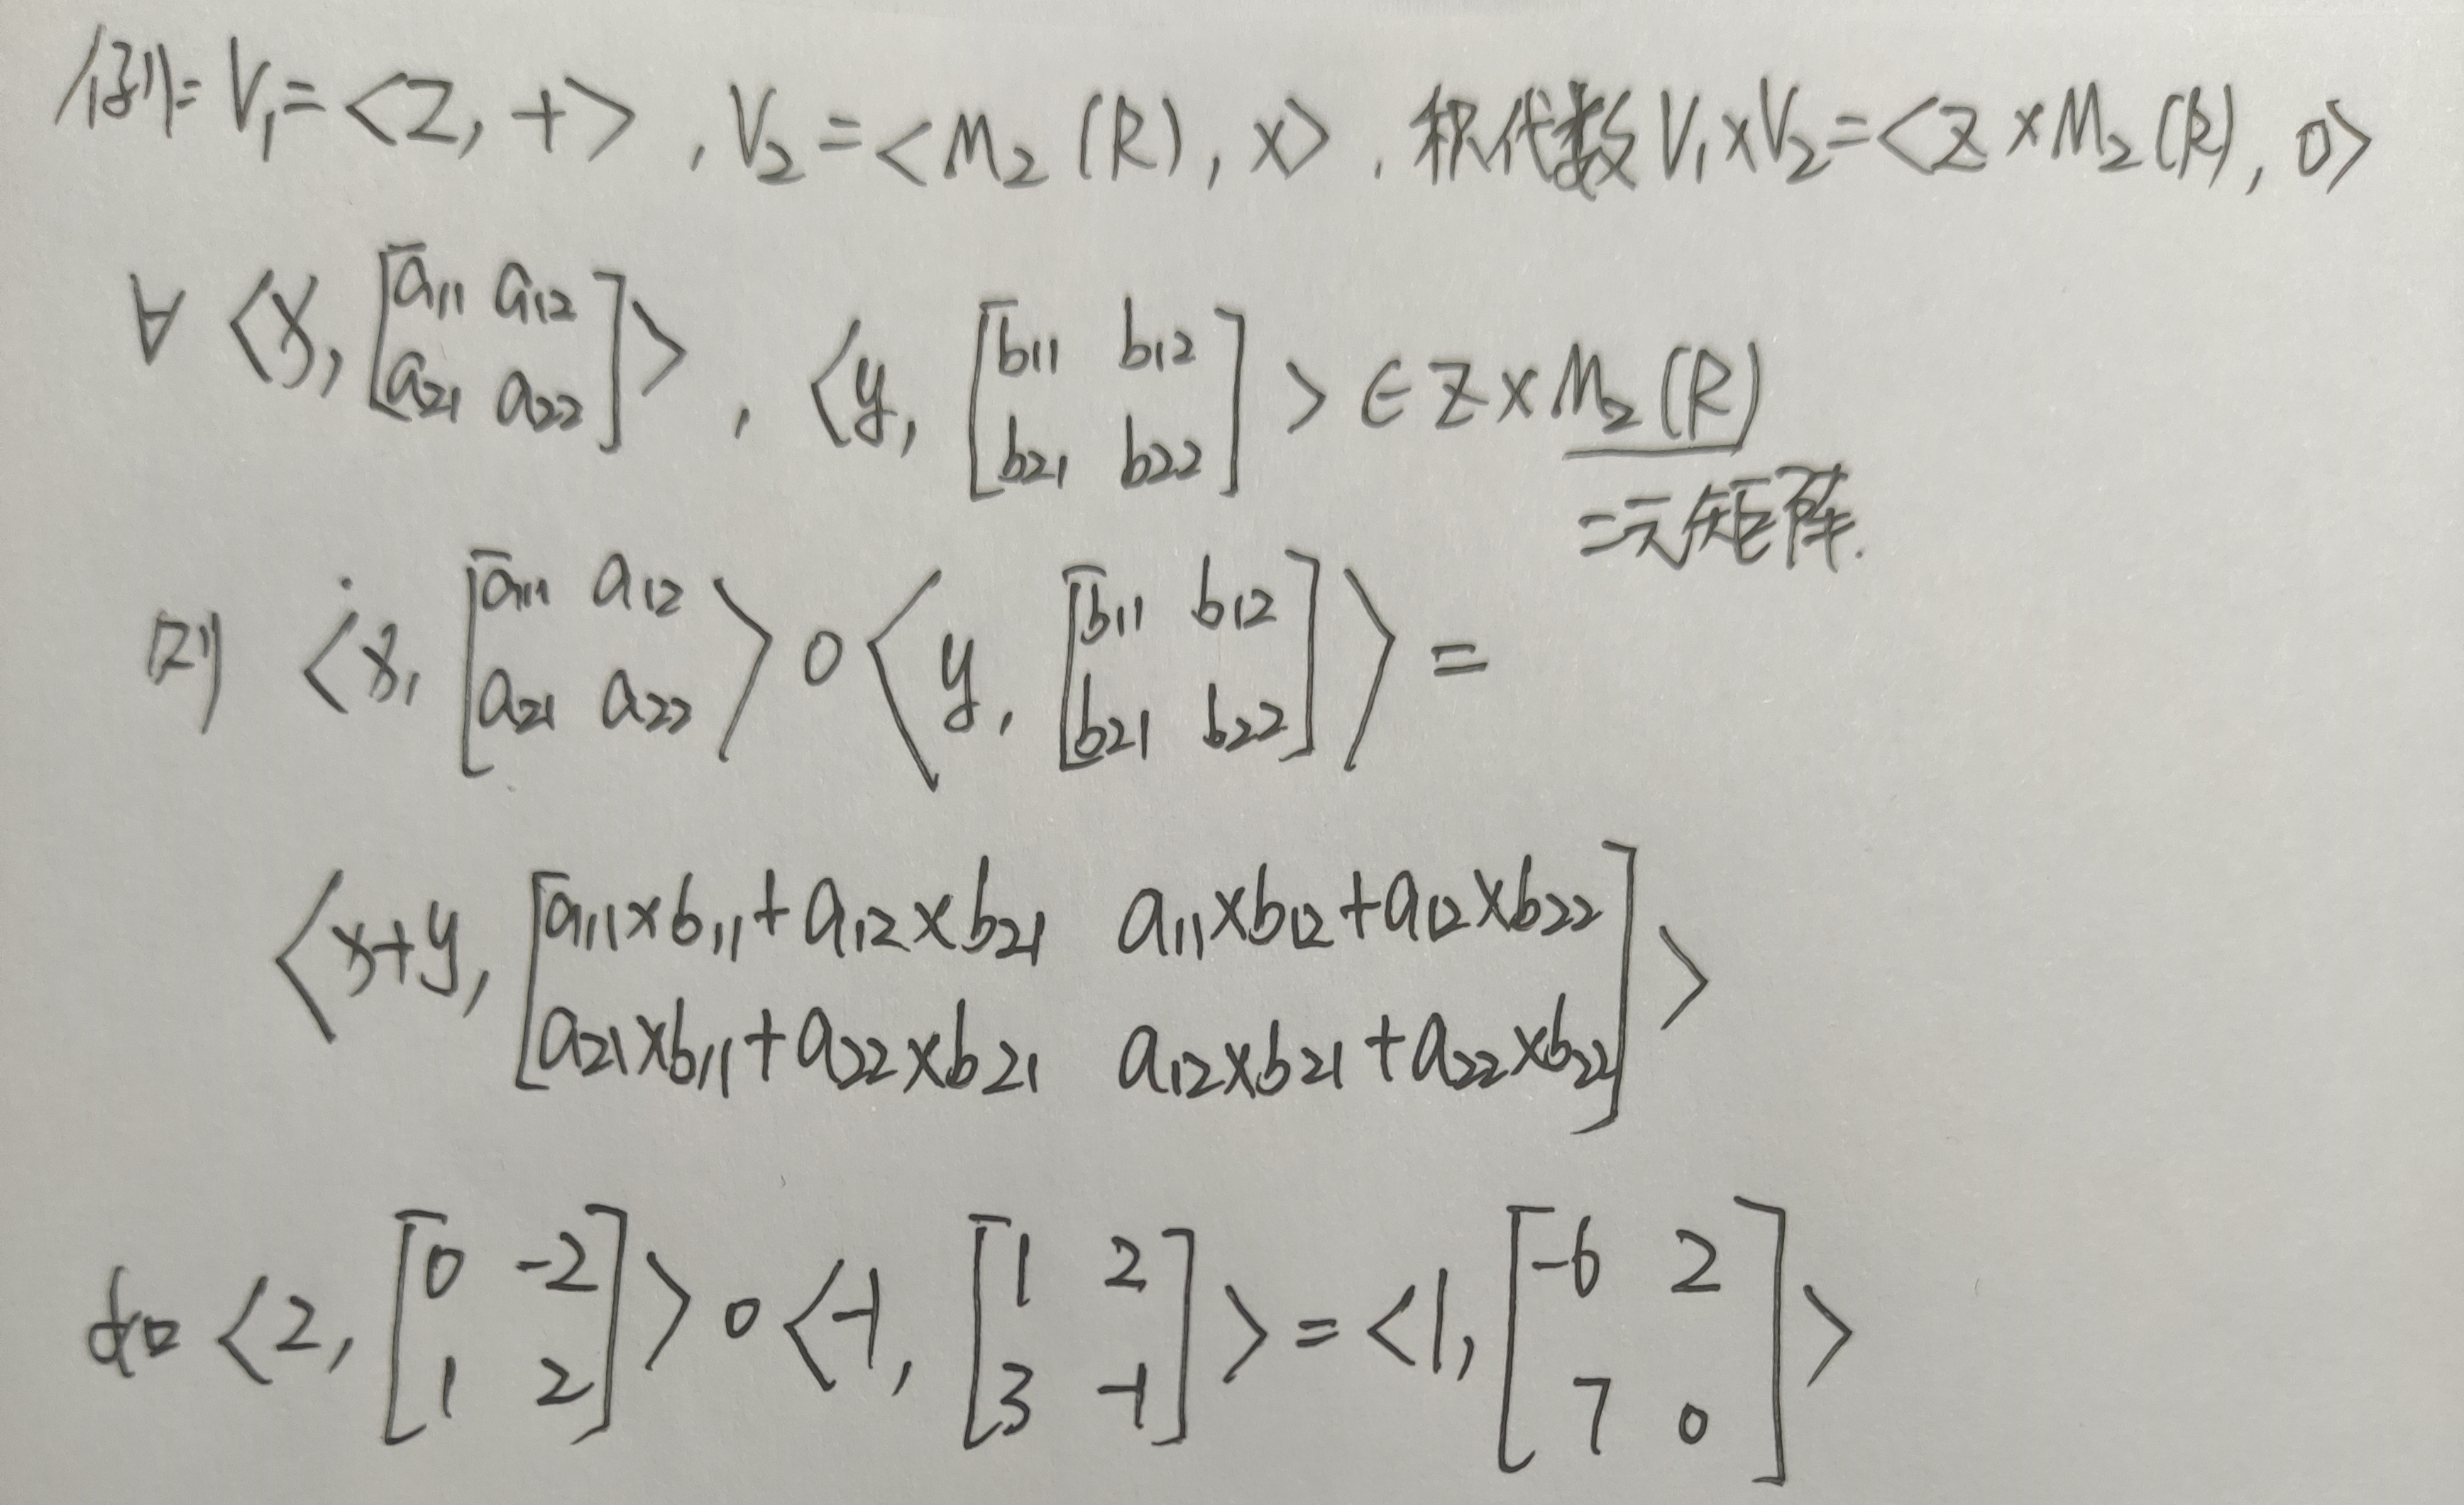 例: V₁=<Z, +>, V₂=<M₂(R), ×>. 积代数 V₁×V₂=<Z×M₂(R), o>
∀ <x, [a₁₁ a₁₂; a₂₁ a₂₂]>, <y, [b₁₁ b₁₂; b₂₁ b₂₂]> ∈ Z×M₂(R)
二元矩阵.
则 <x, [a₁₁ a₁₂; a₂₁ a₂₂> o <y, [b₁₁ b₁₂; b₂₁ b₂₂]> =
<x+y, [a₁₁×b₁₁+a₁₂×b₂₁ a₁₁×b₁₂+a₁₂×b₂₂; a₂₁×b₁₁+a₂₂×b₂₁ a₁₂×b₂₁+a₂₂×b₂₂]>
如 <2, [0 -2; 1 2]> o <-1, [1 2; 3 -1]> = <1, [-6 2; 7 0]>